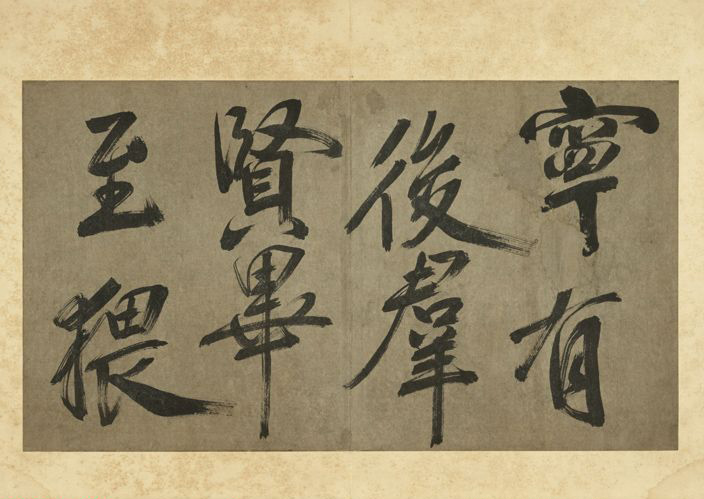 寧有
後羣
賢畢
至猥